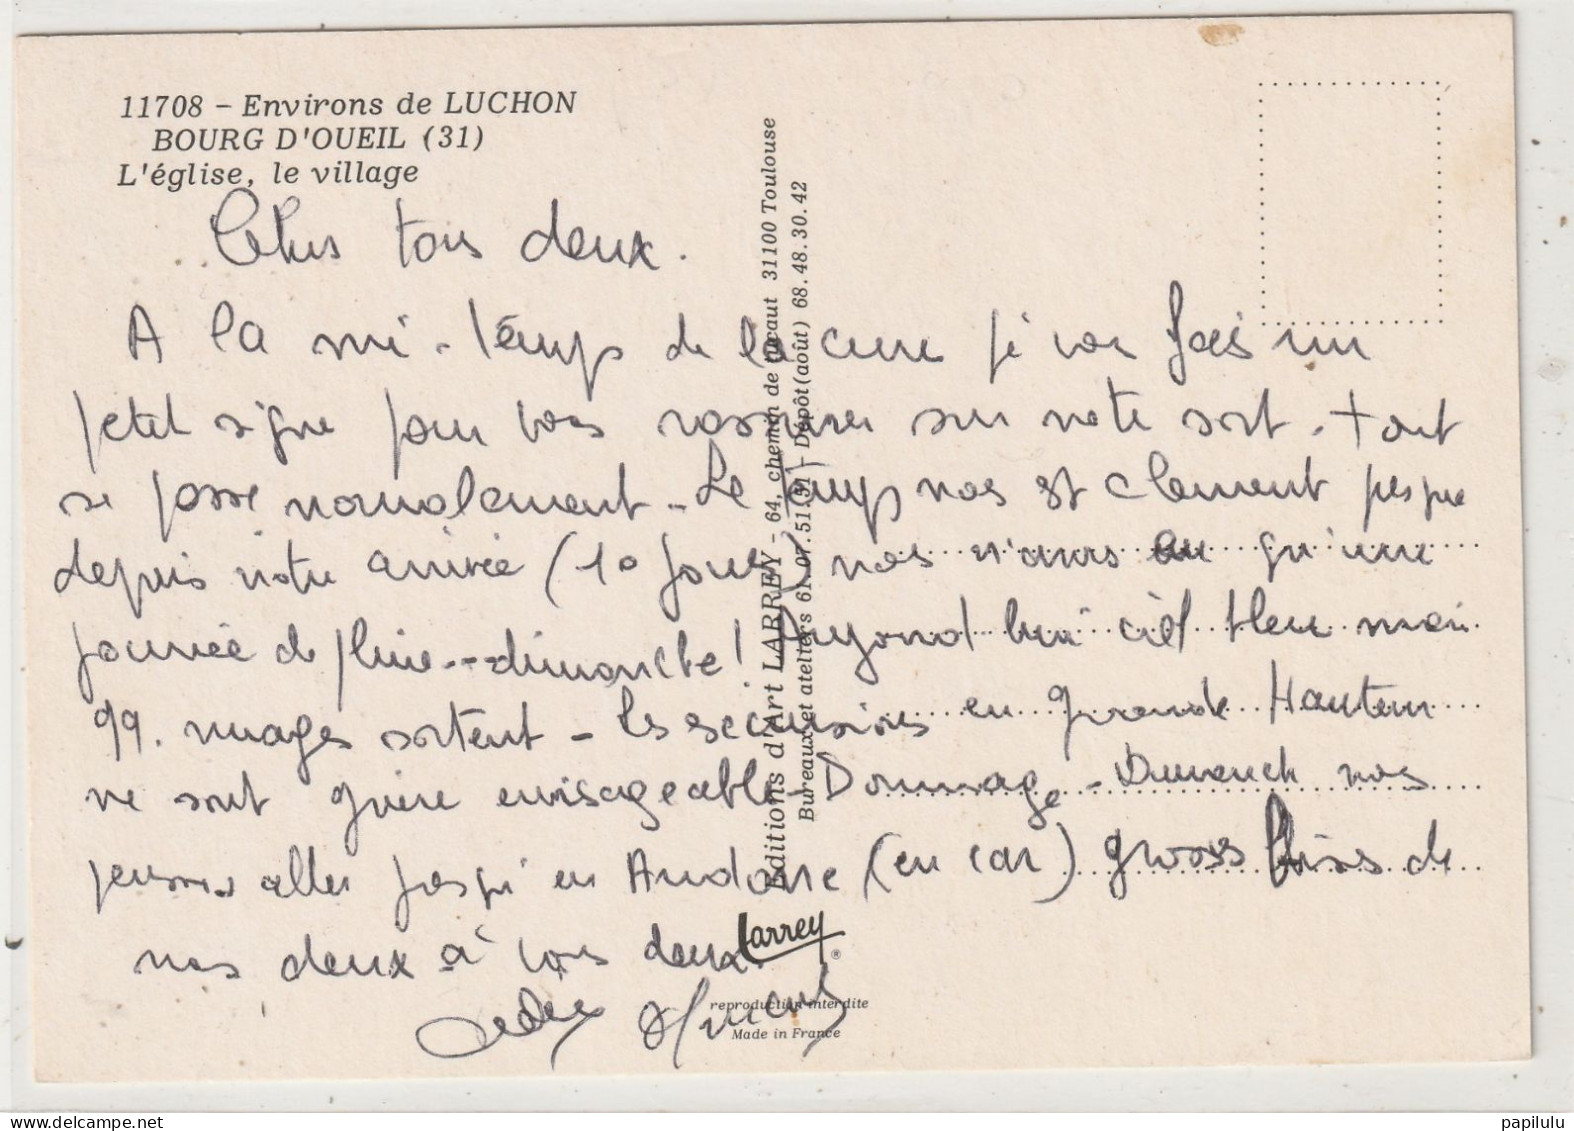 11708 - Environs de LUCHON
BOURG D'OUEIL (31)
L'église, le village
tous deux.
A la mi-temps de la cure je vous fais un
petit signe pour vous rassurer sur notre sort. tout
se passe normalement - Le temps nous est clement presque
depuis notre arrivée (10 jours) nous n'avons eu qu'une
journée de pluie...dimanche! Aujourd'hui ciel bleu mais
qq. nuages sortent - les excursions en grande Hauteur
ne sont guère envisageable - Dommage - Dimanche nous
pensons aller jusqu'en Andorre (en car) grosses bises de
nous deux à vous deux.
Editions d'Art LARREY - 64, chemin de 31100 Toulouse
Bureaux et ateliers 61.07.51.31 - Dépôt (août) 68.48.30.42
Larrey
®
reproduction interdite
Made in France
papilulu